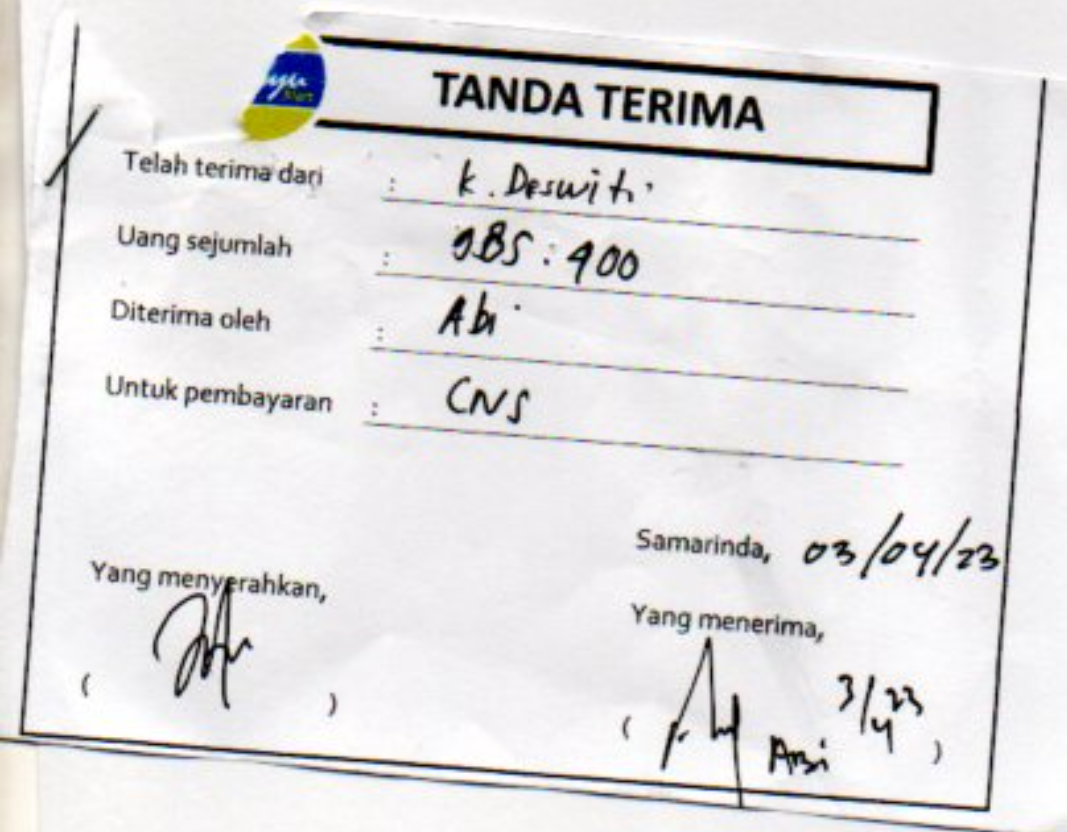 yu
TANDA TERIMA
Telah terima dari : K. Deswiti
Uang sejumlah : 985.900
Diterima oleh : Abi
Untuk pembayaran : CNS
Samarinda, 03/04/23
Yang menyerahkan,
Yang menerima,
3/4 23
( )
( Abi )